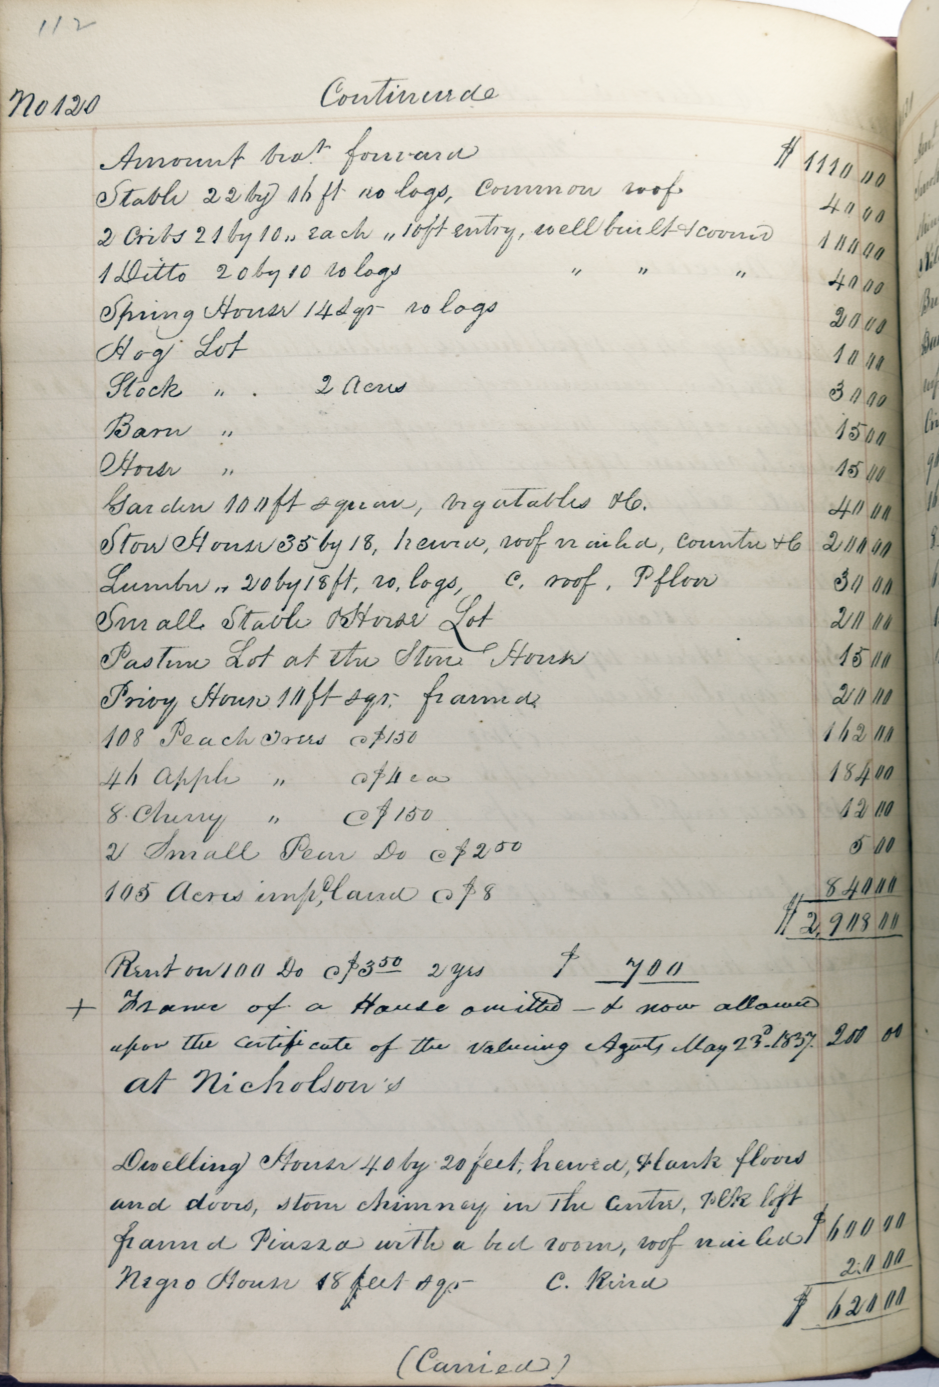 112
No 120
Continued
Amount brot forward $ 1110 00
Stable 22 by 16 ft ro logs, common roof 40 00
2 Cribs 21 by 10 „ each „ 10 ft entry, well built & covered 100 00
1 Ditto 20 by 10 ro logs " " " 40 00
Spring House 14 sqr ro logs 20 00
Hog Lot 10 00
Stock „ . 2 Acres 30 00
Barn „ 15 00
Horse „ 15 00
Garden 100 ft square, vegatables &C. 40 00
Store House 35 by 18, hewed, roof nailed, counter &C 200 00
Lumber „ 20 by 18 ft, ro, logs, C. roof, P floor 30 00
Small Stable & Horse Lot 20 00
Pasture Lot at the Store House 15 00
Privy House 10 ft sqr. framed 20 00
108 Peach Trees @ $1 50 162 00
46 Apple „ @ $4 ea 184 00
8 Cherry „ @ $1 50 12 00
2 Small Pear Do @ $2 50 5 00
105 Acres impd, land @ $8 840 00
$ 2,908 00
Rent on 100 Do @ $3 50 2 yrs $ 700
+ Frame of a House omitted — & now allowed
upon the certificate of the valueing Agents May 23d. 1837. 200 00
at Nicholson's
Dwelling House 40 by 20 feet, hewed, Plank floors
and doors, stone chimney in the Centre, Plk loft
framed Piazza with a bed room, roof nailed $ 600 00
Negro House 18 feet sqr C. Kind 20 00
$ 620 00
(Carried)